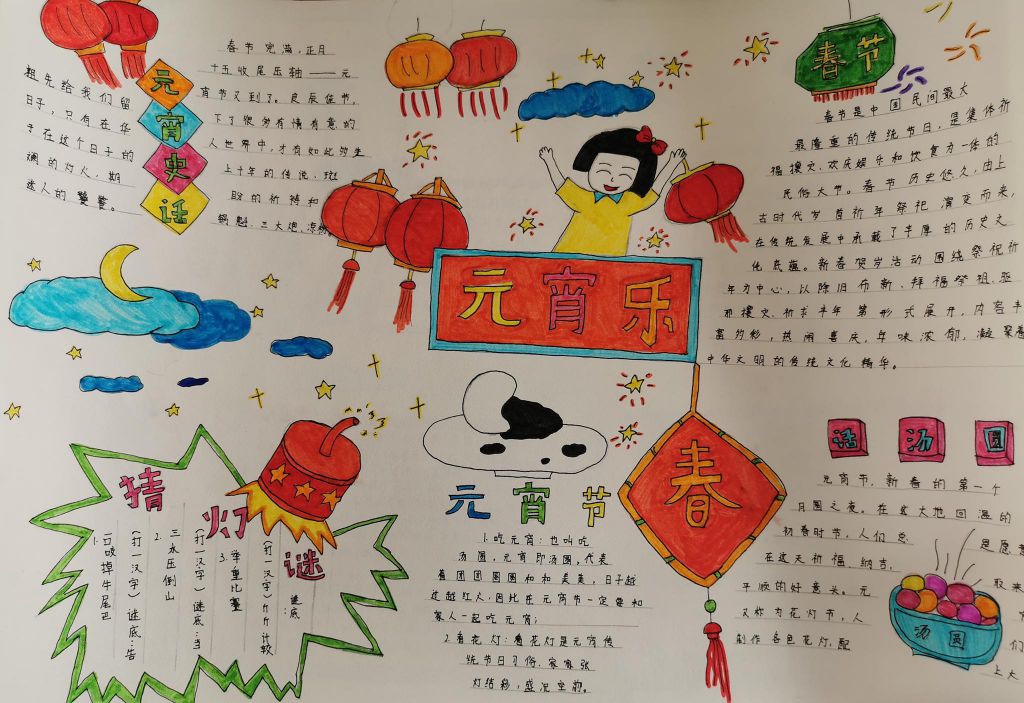 元宵史话
祖先给我们留
日子,只有在华
于在这个日子的
澜的灯火,期
送人的
春节完满,正月
十五收尾压轴——元
宵节又到了。良辰佳节,
下了很多有情有意的
人世界中,才有如此多生
上千年的传说,现
盼的祈祷和
三大炮,凉粉
元宵乐
春节
春节是中国民间最大
最隆重的传统节日,是集体祈
福攘灾、欢庆娱乐和饮食为一体的
民俗大节。春节历史悠久,由上
古时代岁首祈年祭祀演变而来,
在传统发展中承载了丰厚的历史文
化底蕴。新春贺岁活动围绕祭祝祈
年为中心,以除旧布新、拜福祭祖、驱
邪攘灾、祈求丰年 第形式展开,内容丰
富多彩,热闹喜庆,年味浓郁,凝聚着
中华文明的传统文化精华。
猜灯谜
1.一口咬掉牛尾巴
(打一汉字)谜底:告
2.三水压倒山
(打一汉字)谜底:当
3.举重比赛
(打一汉字)斤斤计较
谜底:
元宵节
1.吃元宵:也叫吃
汤圆,元宵即汤圆,代表
着团团圆圆和和美美,日子越
过越红火,因比在元宵节一定要和
家人一起吃元宵;
2.看花灯:看花灯是元宵传
统节日习俗,家家张
灯结彩,盛况空前。
春
话汤圆
元宵节,新春的第一个
月圆之夜。在这大地回温的
初春时节,人们总 是愿意
在这天祈福纳吉,
平顺的好意头。元 取来
又称为花灯节,人
制作各色花灯,配 们
上大
汤圆